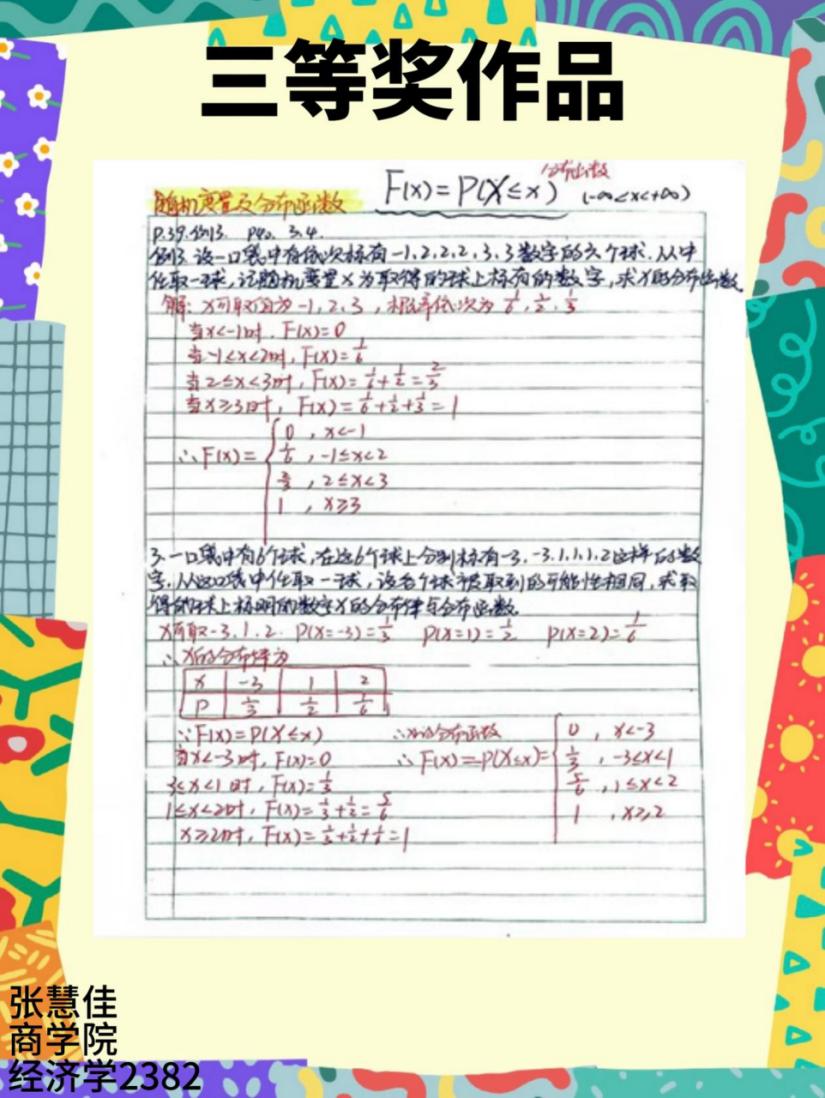 三等奖作品
随机变量及分布函数 F(x)=P(X≤x) 分布函数 (-∞<x<+∞)
P.39.例13. P40. 3.4.
例13.设一口袋中有依次标有-1,2,2,2,3,3数字的六个球.从中
任取一球,记随机变量X为取得的球上标有的数字,求X的分布函数.
解:X可取值为-1,2,3,概率依次为1/6,1/2,1/3
当x<-1时,F(x)=0
当-1<x<2时,F(x)=1/6
当2≤x<3时,F(x)=1/6+1/2=2/3
当x≥3时,F(x)=1/6+1/2+1/3=1
∴F(x)=
0,x<-1
1/6,-1≤x<2
2/3,2≤x<3
1,x≥3
3.一口袋中有6个球,在这6个球上分别标有-3,-3,1,1,1,2这样的数
字,从这口袋中任取一球,设各个球被取到的可能性相同,求取
得的球上标明的数字X的分布律与分布函数.
X可取-3,1,2. P(X=-3)=1/3 P(X=1)=1/2 P(X=2)=1/6
∴X的分布律为
X -3 1 2
P 1/3 1/2 1/6
∵F(x)=P(X≤x)
当x<-3时,F(x)=0
3≤x<1时,F(x)=1/3
1≤x<2时,F(x)=1/3+1/2=5/6
x≥2时,F(x)=1/3+1/2+1/6=1
∴X的分布函数
∴F(x)=P(X≤x)=
0,x<-3
1/3,-3≤x<1
5/6,1≤x<2
1,x≥2
张慧佳
商学院
经济学2382